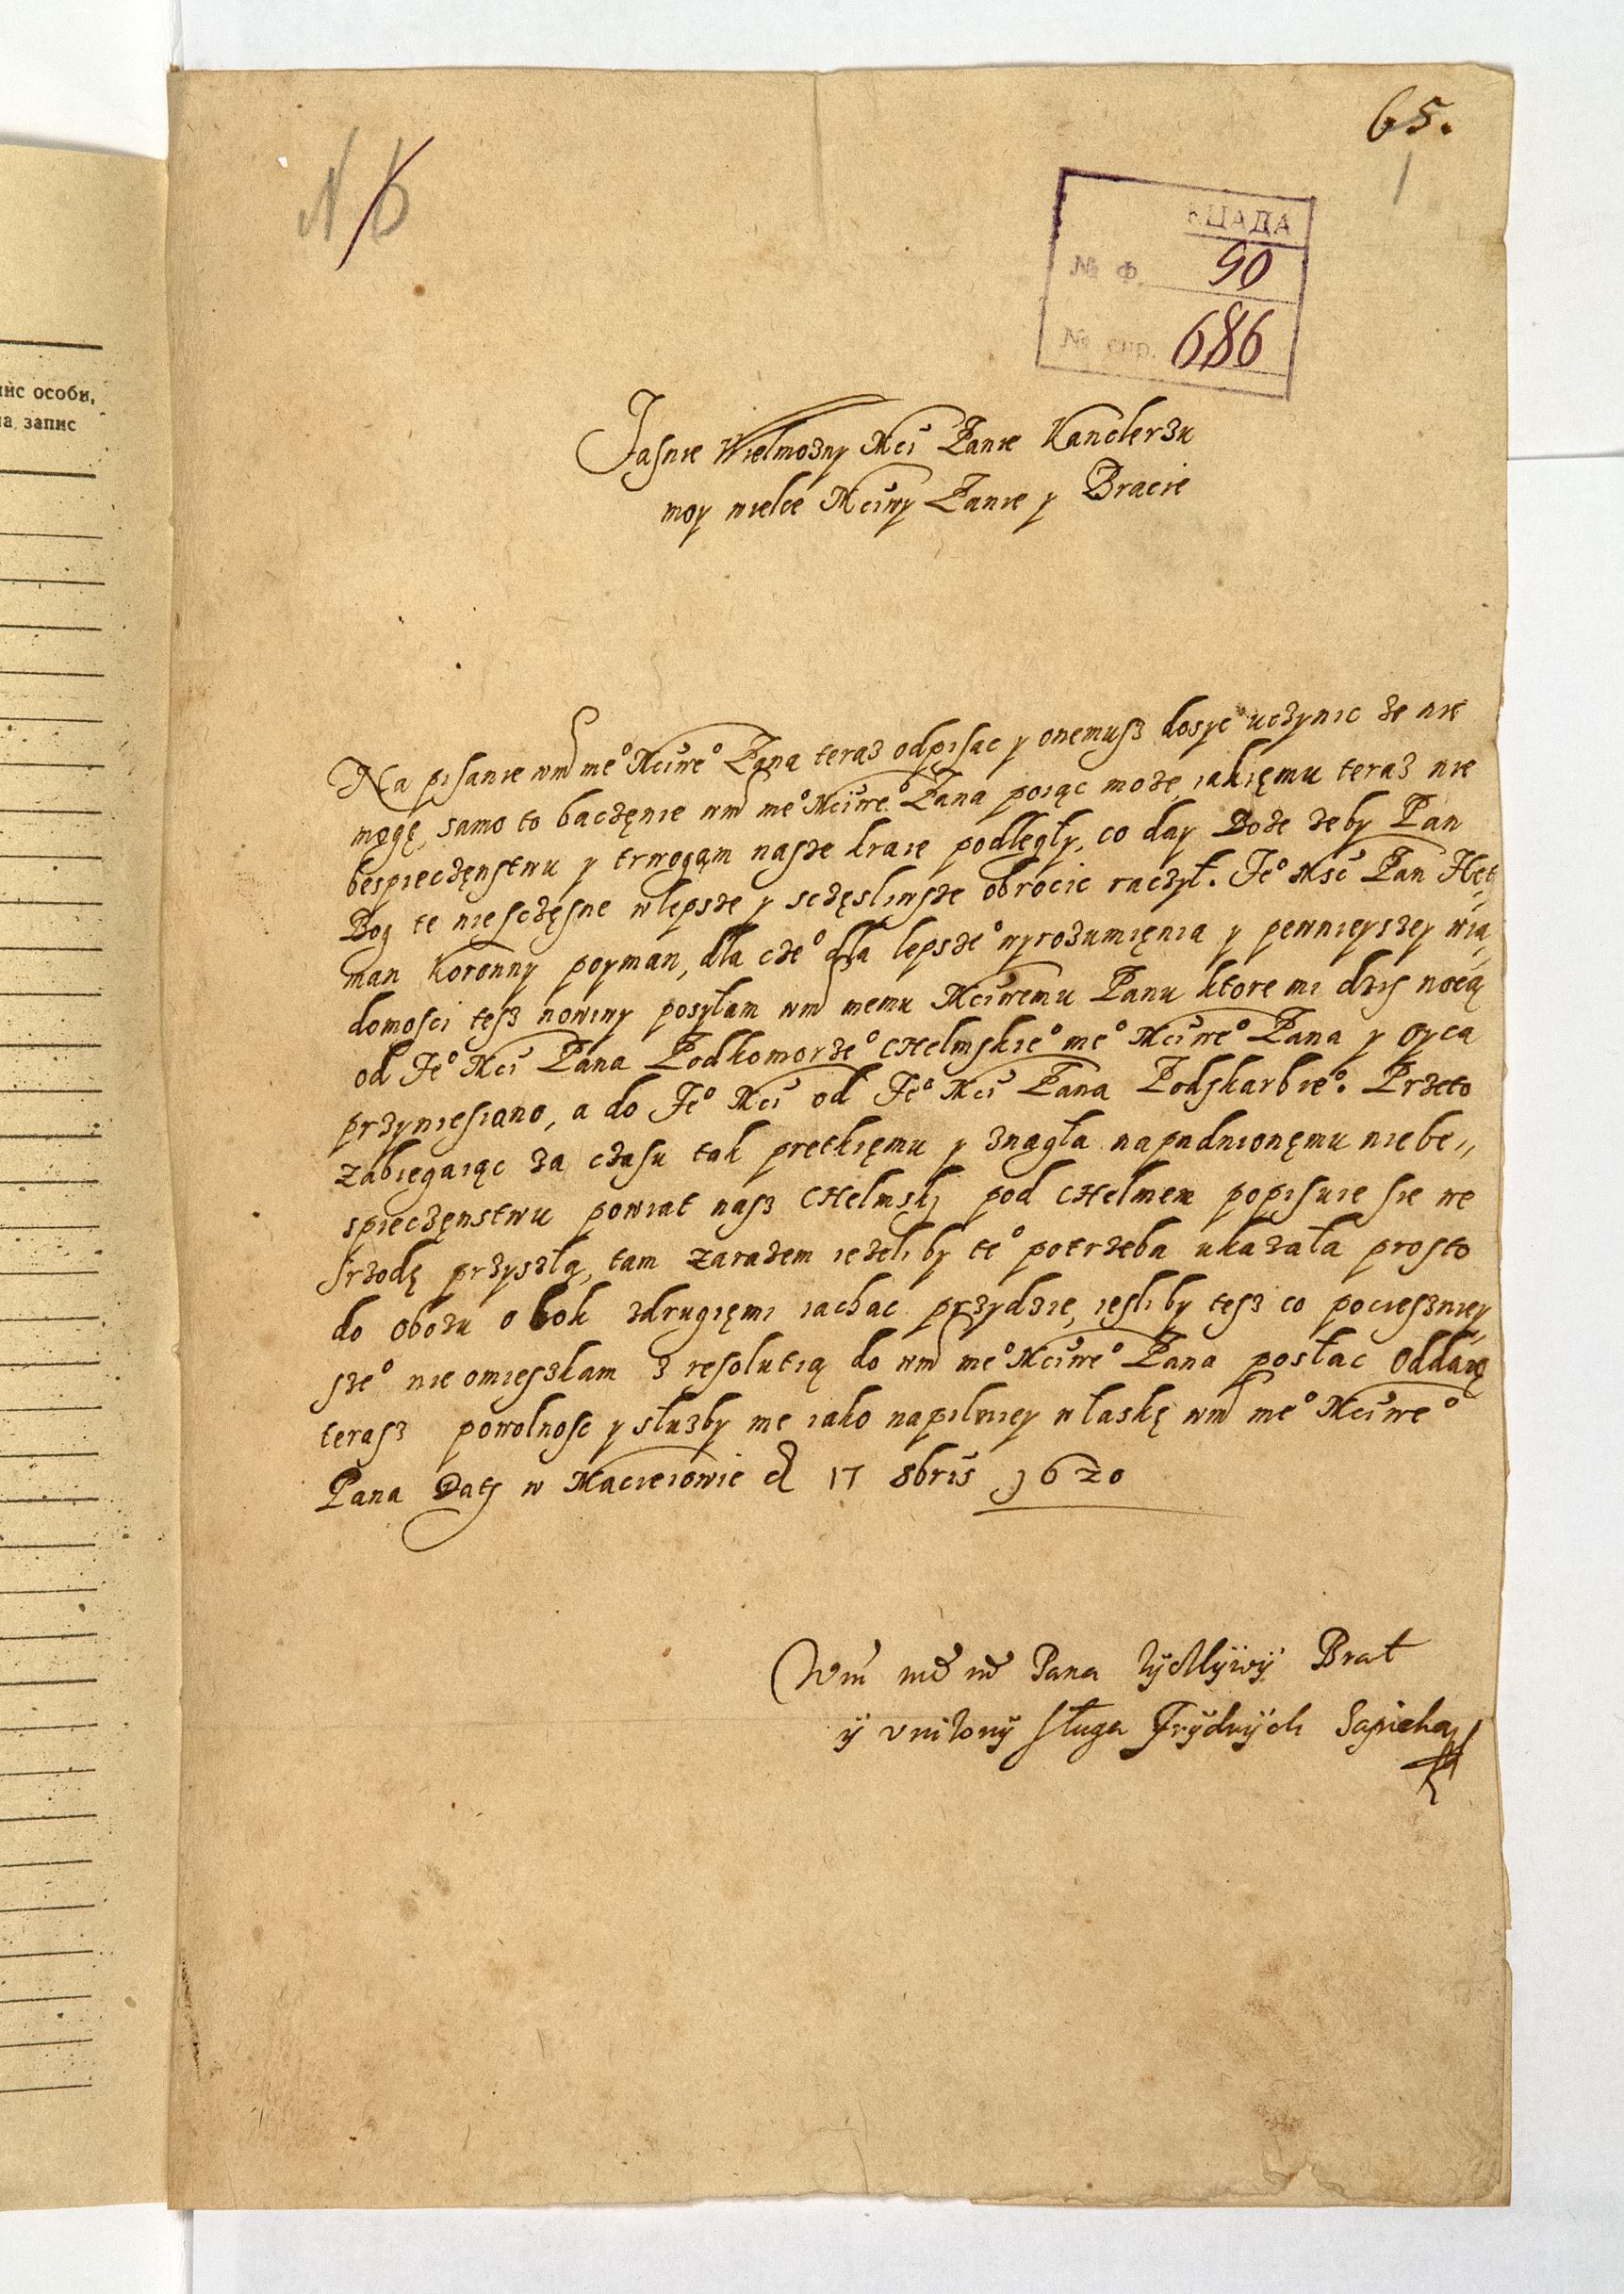 65.
1
N 6
КЦАДА
№ ф. 90
№ спр. 686
ис особи,
на запис
Jasnie Wielmozny Mci Panie Kanclerzu
moy wielce Mciwy Panie y Bracie
Na pisanie wm me° Mciwe° Pana teraz odpisac y onemusz dosyc uczynic ze nie
mogę, samo to baczęnie wm me° Mciwe° Pana poiąc moze, iakięmu teraz nie
bespieczęnstwu y trwogąm nasze kraie podległy, co day Boze zeby Pan
Bog te niesczęsne w lepsze y sczęsliwsze obrocic raczył. Je° Msc Pan Het,,
man Koronny poyman, dla cze° dla lepsze° wyrozumięnia y pewnieyszey wia,,
domosci tesz nowiny posyłam wm memu Mciwemu Panu ktore mi dzis nocą
od Je° Mci Pana Podkomorze° CHelmskie° me° Mciwe° Pana y Oyca
przyniesiano, a do Je° Mci od Je° Mci Pana Podskarbie°. Przeto
zabiegaiąc za czasu tak prętkięmu y znagła napadnionęmu niebe,,
spieczęnstwu powiat nasz CHelmskj pod CHelmem popisuie sie we
srzodę przyszłą, tam zarazem iezeliby te° potrzeba ukazała prosto
do obozu obok zdrugięmi iachac przydzie, iesliby tesz co pocieszniey,,
sze° nie omieszkam z resolutią do wm me° Mciwe° Pana posłac Oddaię
terasz powolnosc y słuzby me iako napilniey w łaskę wm me° Mciwe°
Pana Datj w Macieiowie d 17 8bris 1620
Wm me° m° Pana zyczlywy Brat
y vnizony sługa Frydrych Sapieha